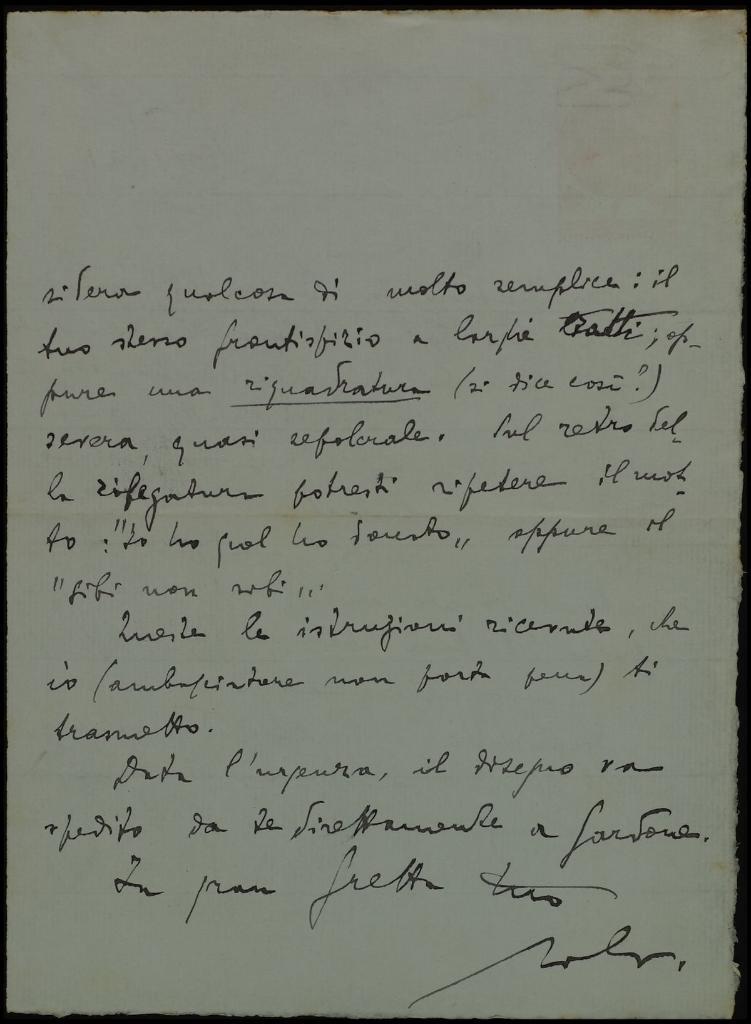 sidera qualcosa di molto semplice: il
tuo stesso frontispizio a larghi tratti; op-
pure una riquadratura (si dice così?)
severa, quasi sepolcrale. Sul retro del-
la rilegatura potresti ripetere il mot-
to: "Io ho quel ho donato„ oppure il
"sibi non sibi„.
Queste le istruzioni ricevute, che
io (ambasciatore non porta pena) ti
trasmetto.
Data l'urgenza, il disegno va
spedito da te direttamente a Gardone.
In gran fretta tuo